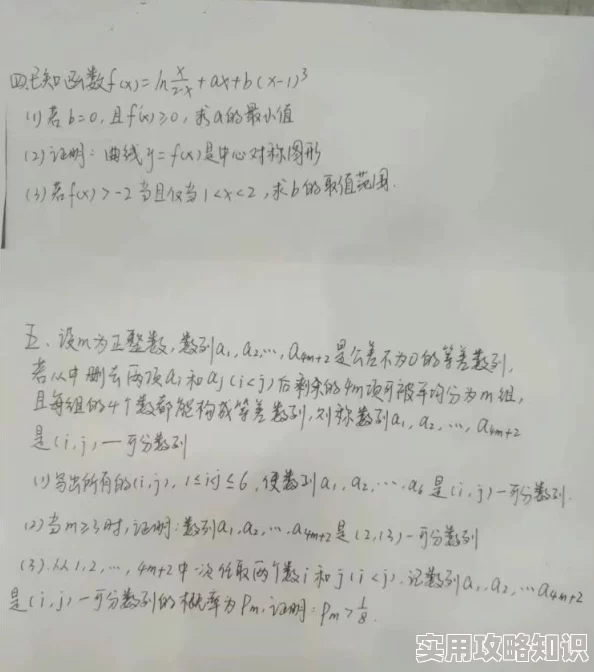 四.已知函数f(x)=ln x/(2-x)+ax+b(x-1)³
(1)若b=0,且f'(x)≥0,求a的最小值
(2)证明:曲线y=f(x)是中心对称图形
(3)若f(x)>-2当且仅当1<x<2,求b的取值范围.
五、设m为正整数,数列a₁,a₂,…,a₄ₘ₊₂是公差不为0的等差数列,
若从中删去两项aᵢ和aⱼ(i<j)后剩余的4m项可被平均分为m组,
且每组的4个数都能构成等差数列,则称数列a₁,a₂,…,a₄ₘ₊₂
是(i,j)—可分数列
(1)写出所有的(i,j),1≤i<j≤6,使数列a₁,a₂,…,a₆是(i,j)-可分数列.
(2)当m≥3时,证明:数列a₁,a₂,…a₄ₘ₊₂是(2,13)-可分数列
(3).从1,2,…,4m+2中一次任取两个数i和j(i<j).记数列a₁,a₂,…a₄ₘ₊₂
是(i,j)-可分数列的概率为Pₘ,证明:Pₘ>1/8.
实用攻略知识